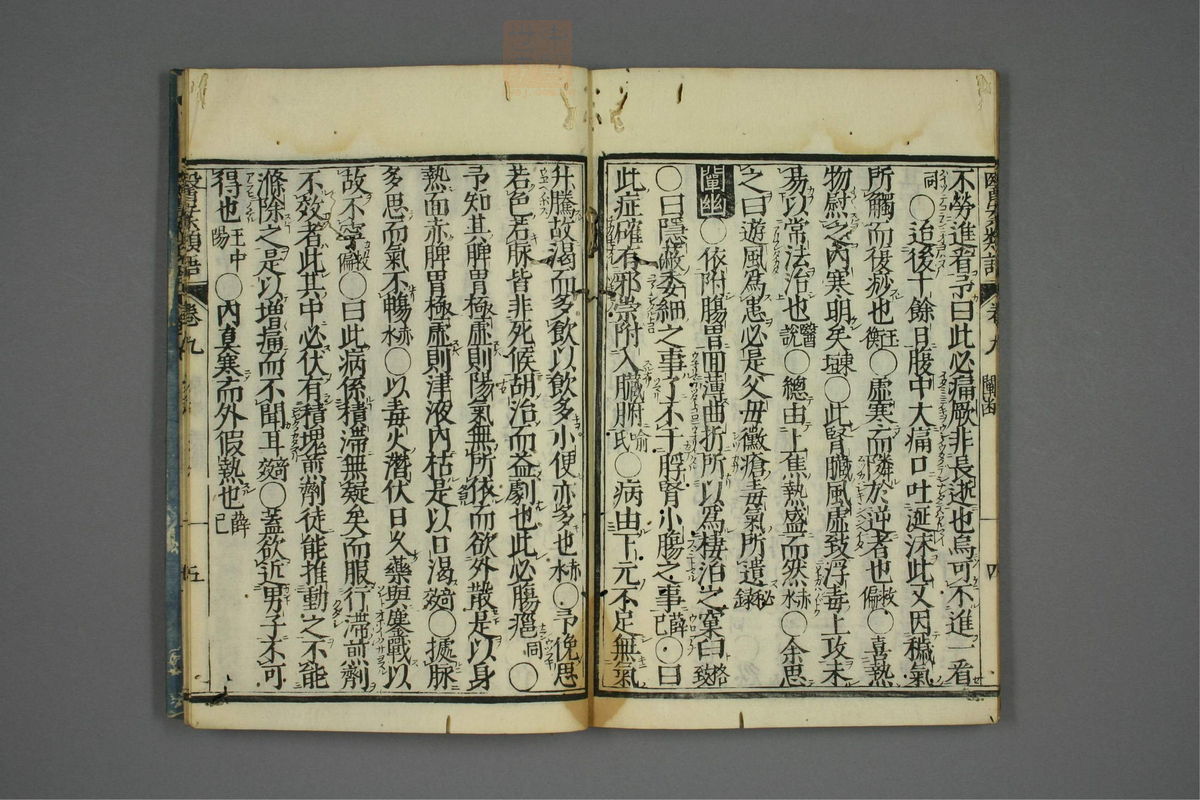 不勞進者予曰此必痛厥非長逝也烏可不進一看
同○治後十餘日腹中大痛口吐涎沫此又因穢氣
所觸而後痧也王衡○虛寒而隣於逆者也救偏○喜熱
物慰之內寒明矣○此腎臟風虛致浮毒上攻未
易以常法治也醫説○總由上焦熱盛而然赤水○余思
之曰遊風爲患必是父母黴瘡毒氣所遺秘錄
闡幽○依附腸胃面薄曲折所以爲棲泊之窠臼格致
○曰隱微委細之事了不干脬腎小腸之事薛己○曰
此症確有邪祟附入臟腑喻氏○病由下元不足無氣
升騰故渴而多飲以飲多小便亦多也赤水○予俛思
若色若脉皆非死候胡治而益劇也此必膓癰同○
予知其脾胃極虛則陽氣無所依而欲外散是以身
熱面赤脾胃極虛則津液內枯是以口渴○據脉
多思而氣不暢赤水○以毒火潛伏日久藥與鏖戰以
故不寧救偏○曰此病係積滯無疑矣而服行滯煎劑
不效者此其中必伏有積塊煎劑徒能推動之不能
滌除之是以增痛而不聞耳○蓋欲近男子不可
得也王中陽○內眞寒而外假熱也薛己
卷九
闡幽
四
卷九
五